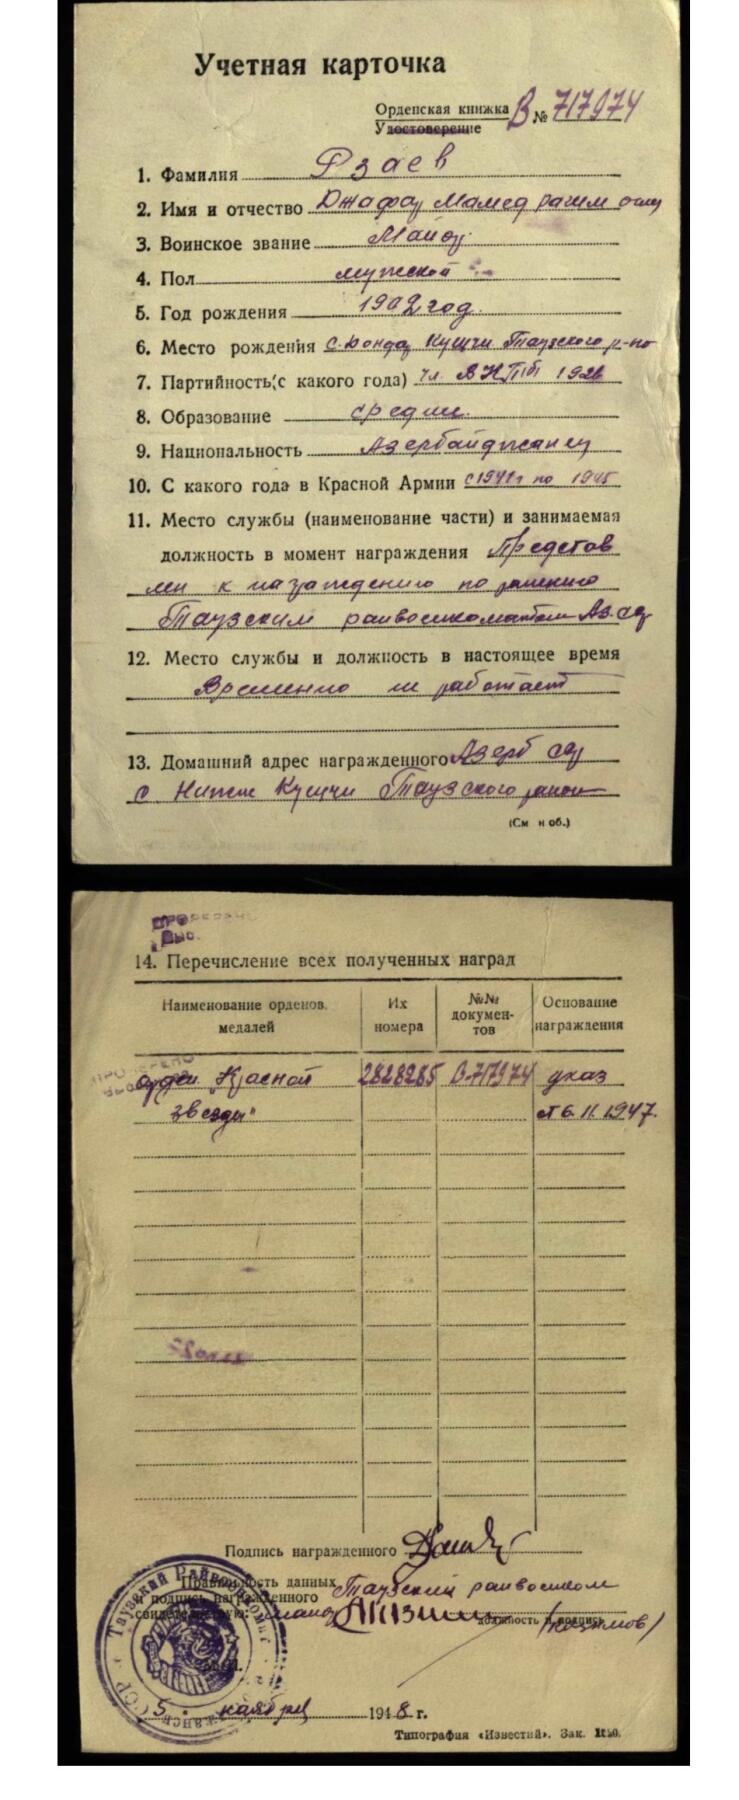 Учетная карточка
Орденская книжка В № 717974
Удостоверение
1. Фамилия Рзаев
2. Имя и отчество Джафар Мамед рагим оглы
3. Воинское звание Майор
4. Пол мужской
5. Год рождения 1902 год.
6. Место рождения с. Кущчи Таузского р-на
7. Партийность (с какого года) чл. ВКП(б) 192
8. Образование средне.
9. Национальность Азербайджанец
10. С какого года в Красной Армии с 1941 г по 1945
11. Место службы (наименование части) и занимаемая
должность в момент награждения Представ
лен к награждению по
Таузским райвоенкоматом Аз. сср
12. Место службы и должность в настоящее время
Временно не работает
13. Домашний адрес награжденного Азерб сср
с. Нижне Кущчи Таузского района
(См н об.)
ПРОВЕРЕНО
14. Перечисление всех полученных наград
Наименование орденов, медалей
Их номера
№№ документов
Основание награждения
орден „Красной 2828285 В-717974 указ
звезды" от 6.11.1947.
Подпись награжденного
Правильность данных Таузский райвоенком
и подпись награжденного
свидетельствую:
должность и подпись
(Казимов)
Таузский Райвоенкомат
5. ноября 1948 г.
Типография «Известий». Зак.